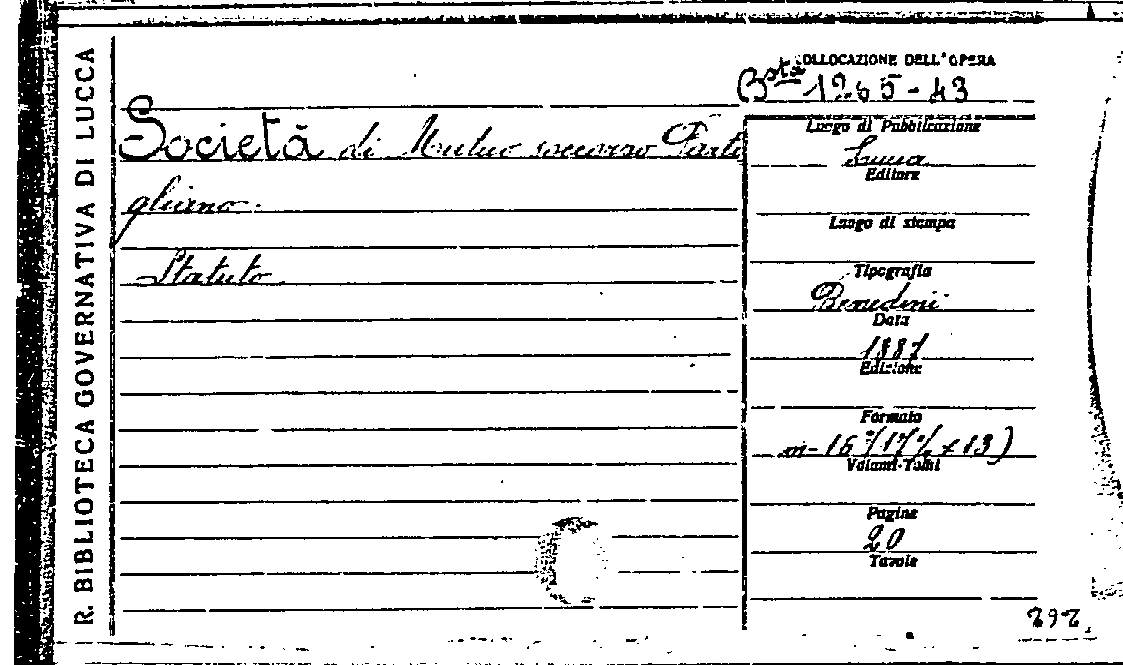 R. BIBLIOTECA GOVERNATIVA DI LUCCA
COLLOCAZIONE DELL'OPERA
Bsta 1265-43
Società di Mutuo soccorso Parti
gliano.
Statuto
Luogo di Pubblicazione
Lucca
Editore
Luogo di stampa
Tipografia
Benedini
Data
1887
Edizione
Formato
in-16°
Volumi-Tomi
Pagine
20
Tavole
292